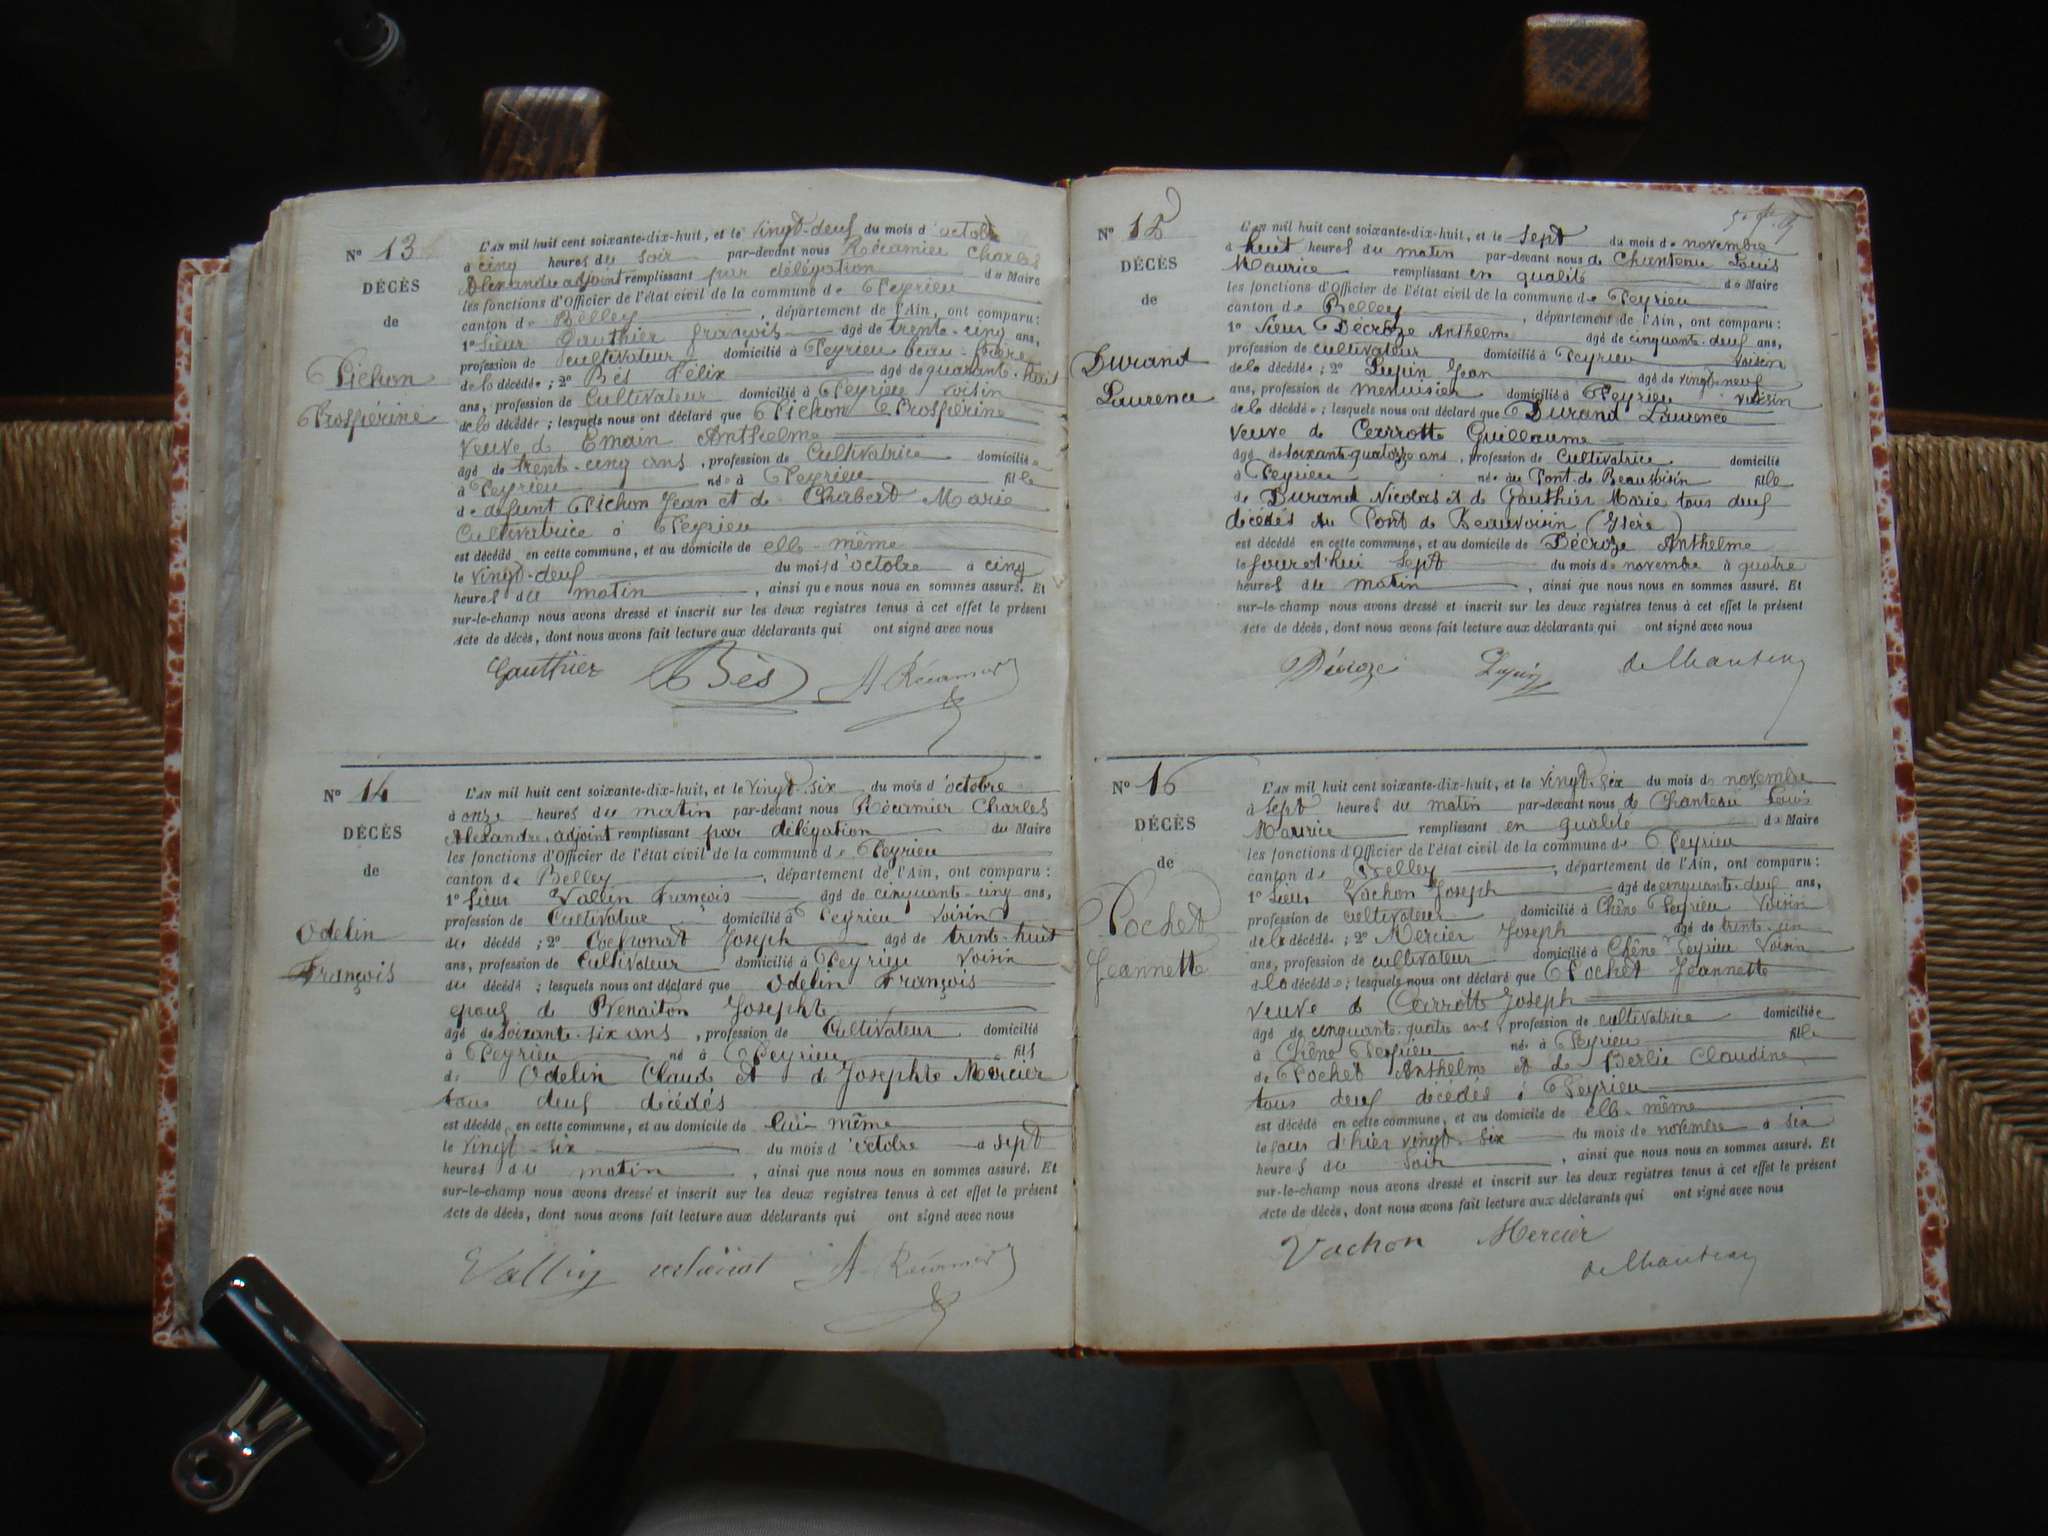 N° 13
DÉCÈS
de
Pichon
Prospérine
L'AN mil huit cent soixante-dix-huit, et le vingt-deux du mois d'octobre
à cinq heures du soir par-devant nous Récamier Charles
Alexandre adjoint remplissant par délégation du Maire
les fonctions d'Officier de l'état civil de la commune de Peyrieu
canton de Belley, département de l'Ain, ont comparu:
1° Sieur Gauthier françois âgé de trente-cinq ans,
profession de cultivateur domicilié à Peyrieu beau-frère
de la décédée; 2° Bès Félix âgé de quarante-huit
ans, profession de cultivateur domicilié à Peyrieu voisin
de la décédée; lesquels nous ont déclaré que Pichon Prospérine
veuve de Emain Anthelme
âgé de trente-cinq ans, profession de Cultivatrice domiciliée
à Peyrieu née à Peyrieu fille
de défunt Pichon Jean et de Chabert Marie
Cultivatrice à Peyrieu
est décédé en cette commune, et au domicile de elle-même
le vingt-deux du mois d'octobre à cinq
heures du matin, ainsi que nous nous en sommes assuré. Et
sur-le-champ nous avons dressé et inscrit sur les deux registres tenus à cet effet le présent
Acte de décès, dont nous avons fait lecture aux déclarants qui ont signé avec nous
Gauthier Bès A. Récamier
N° 14
DÉCÈS
de
Odelin
François
L'AN mil huit cent soixante-dix-huit, et le vingt-six du mois d'octobre
à onze heures du matin par-devant nous Récamier Charles
Alexandre adjoint remplissant par délégation du Maire
les fonctions d'Officier de l'état civil de la commune de Peyrieu
canton de Belley, département de l'Ain, ont comparu:
1° Sieur Vallin François âgé de cinquante-cinq ans,
profession de Cultivateur domicilié à Peyrieu voisin
du décédé; 2° Cochonat Joseph âgé de trente-huit
ans, profession de Cultivateur domicilié à Peyrieu voisin
du décédé; lesquels nous ont déclaré que Odelin François
epoux de Josephte
âgé de soixante-six ans, profession de Cultivateur domicilié
à Peyrieu né à Peyrieu fils
de Odelin Claude et de Josephte Mercier
tous deux décédés
est décédé en cette commune, et au domicile de lui-même
le vingt-six du mois d'octobre à sept
heures du matin, ainsi que nous nous en sommes assuré. Et
sur-le-champ nous avons dressé et inscrit sur les deux registres tenus à cet effet le présent
Acte de décès, dont nous avons fait lecture aux déclarants qui ont signé avec nous
Vallin A. Récamier
N° 15
DÉCÈS
de
Durand
Laurence
L'AN mil huit cent soixante-dix-huit, et le sept du mois de novembre
à huit heures du matin par-devant nous de Chanteau Louis
Maurice remplissant en qualité de Maire
les fonctions d'Officier de l'état civil de la commune de Peyrieu
canton de Belley, département de l'Ain, ont comparu:
1° Sieur Décroze Anthelme âgé de cinquante-deux ans,
profession de cultivateur domicilié à Peyrieu voisin
de la décédée; 2° Lupin Jean âgé de vingt-neuf
ans, profession de menuisier domicilié à Peyrieu voisin
de la décédée; lesquels nous ont déclaré que Durand Laurence
veuve de Cerrotte Guillaume
âgé de soixante-quatorze ans, profession de Cultivatrice domicilié
à Peyrieu née au Pont-de-Beauvoisin fille
de Durand Nicolas et de Gauthier Marie tous deux
décédés au Pont de Beauvoisin (Isère)
est décédé en cette commune, et au domicile de Décroze Anthelme
le jour d'hui sept du mois de novembre à quatre
heures du matin, ainsi que nous nous en sommes assuré. Et
sur-le-champ nous avons dressé et inscrit sur les deux registres tenus à cet effet le présent
Acte de décès, dont nous avons fait lecture aux déclarants qui ont signé avec nous
Décroze Lupin de Chanteau
N° 16
DÉCÈS
de
Pochet
Jeannette
L'AN mil huit cent soixante-dix-huit, et le vingt-six du mois de novembre
à sept heures du matin par-devant nous de Chanteau Louis
Maurice remplissant en qualité de Maire
les fonctions d'Officier de l'état civil de la commune de Peyrieu
canton de Belley, département de l'Ain, ont comparu:
1° Sieur Vachon Joseph âgé de cinquante-deux ans,
profession de cultivateur domicilié à Chêne Peyrieu voisin
de la décédée; 2° Mercier Joseph âgé de trente-un
ans, profession de cultivateur domicilié à Chêne Peyrieu voisin
de la décédée; lesquels nous ont déclaré que Pochet Jeannette
veuve de Cerrotte Joseph
âgé de cinquante-quatre ans, profession de cultivatrice domiciliée
à Chêne Peyrieu née à Peyrieu fille
de Pochet Anthelme et de Berlie Claudine
tous deux décédés à Peyrieu
est décédé en cette commune, et au domicile de elle-même
le jour d'hier vingt-six du mois de novembre à six
heures du soir, ainsi que nous nous en sommes assuré. Et
sur-le-champ nous avons dressé et inscrit sur les deux registres tenus à cet effet le présent
Acte de décès, dont nous avons fait lecture aux déclarants qui ont signé avec nous
Vachon Mercier
de Chanteau